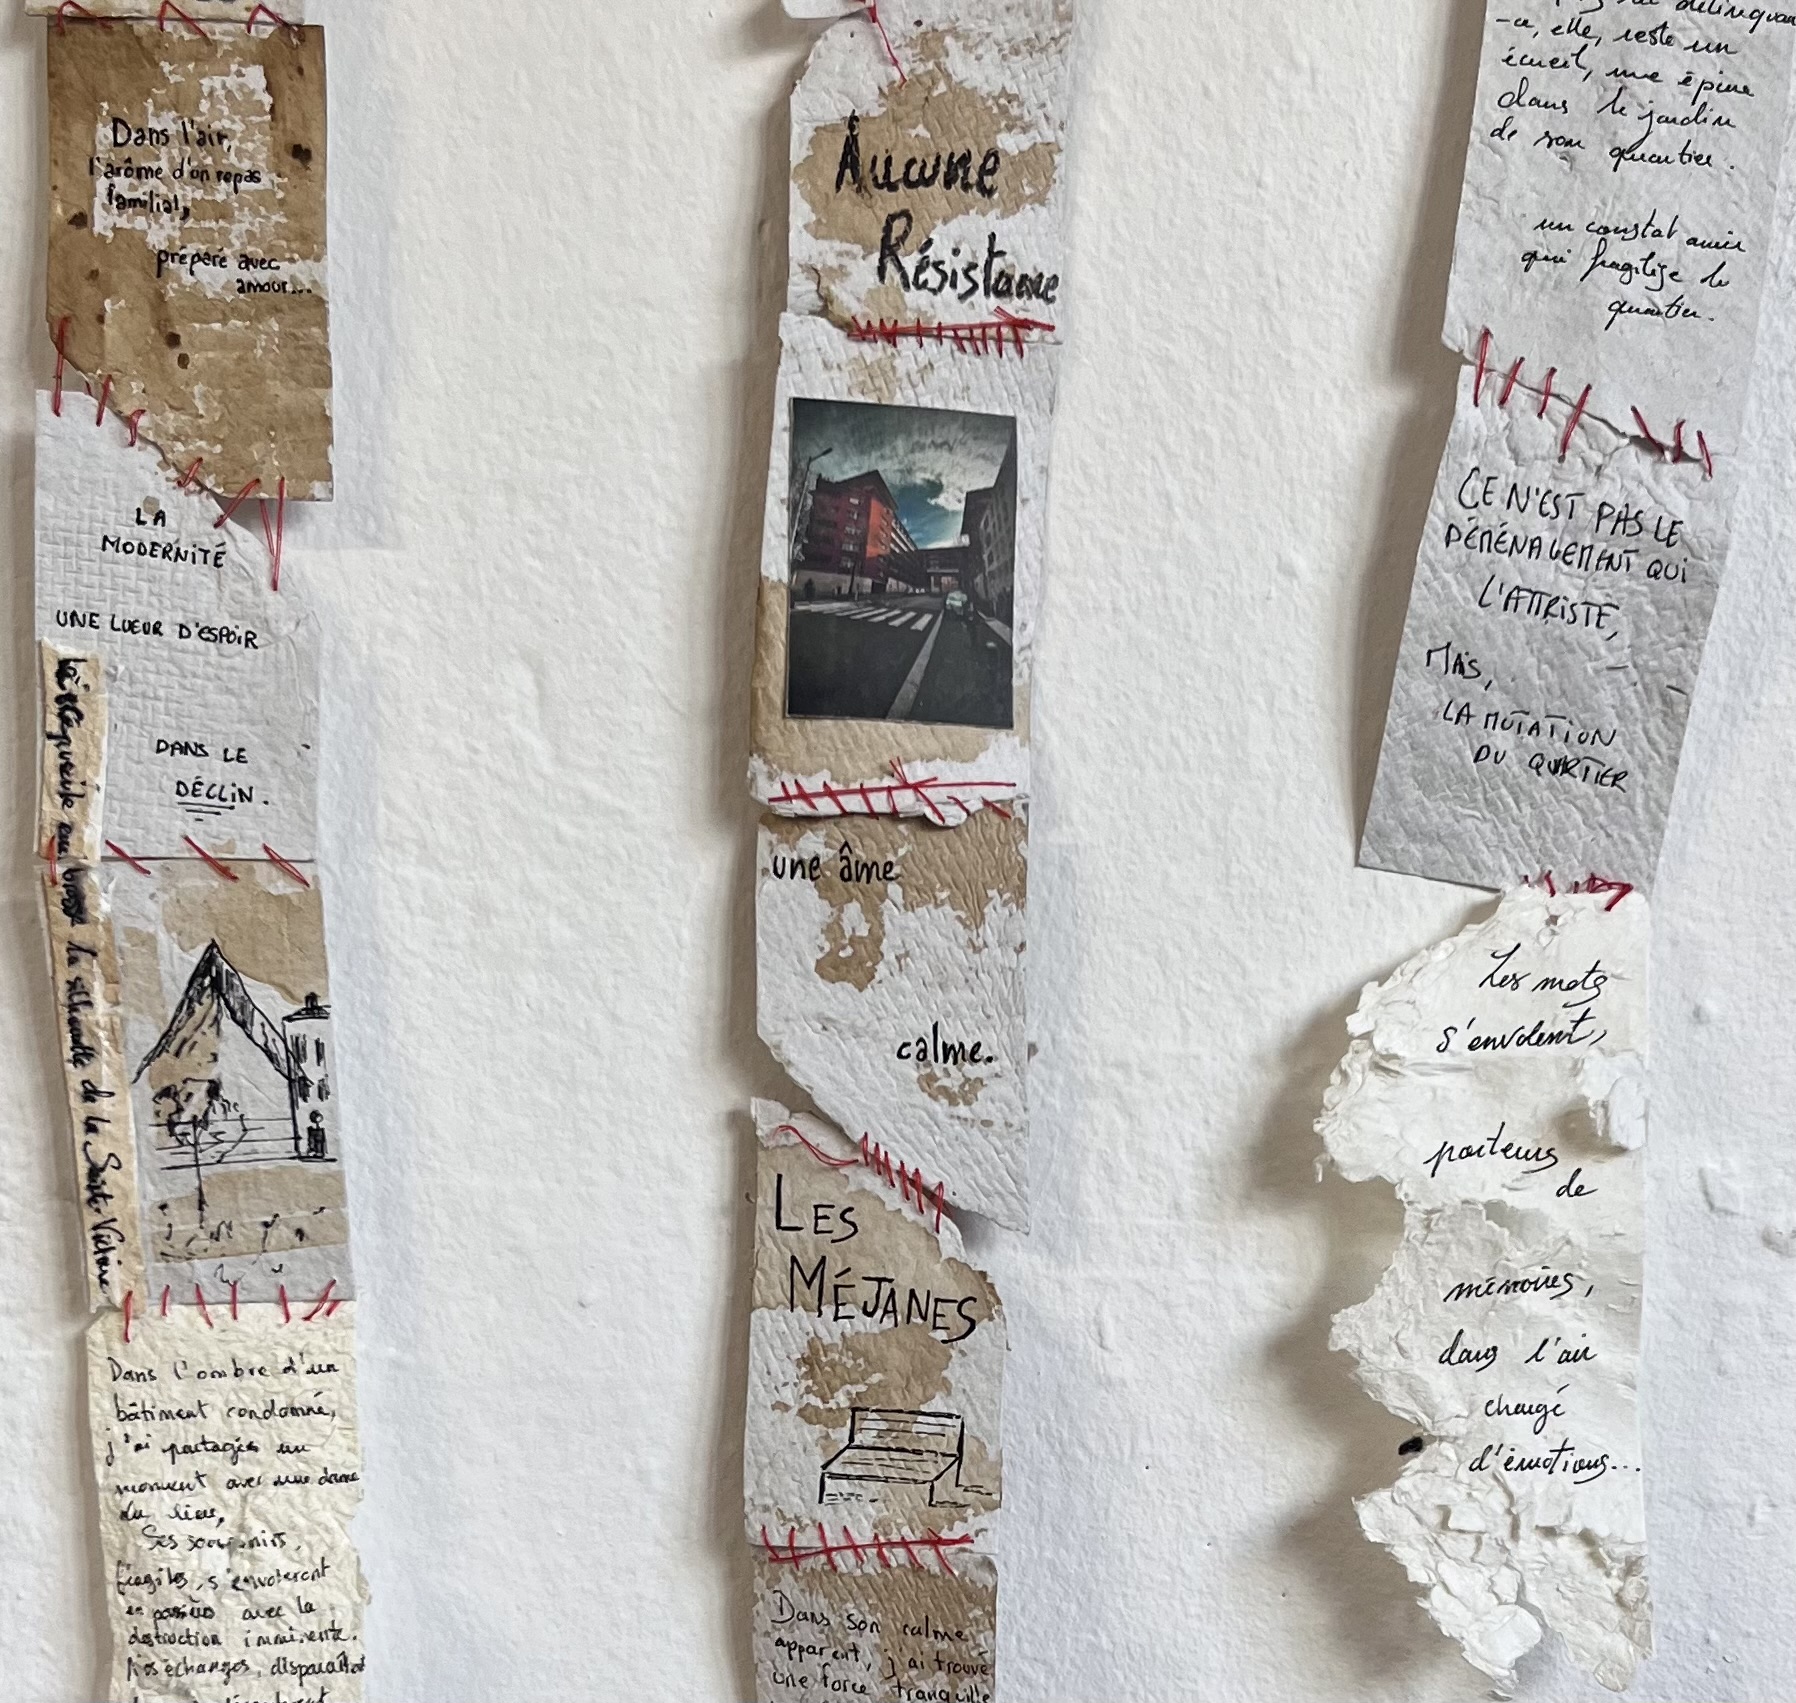 Dans l'air,
l'arôme d'un repas
familial,
préparé avec
amour...
LA
MODERNITÉ
UNE LUEUR D'ESPOIR
DANS LE
DÉCLIN.
la silhouette de la Sainte Victoire
Dans l'ombre d'un
bâtiment condamné,
j'ai partagés un
moment avec une dame
du lieu,
Ses souvenirs,
fragiles, s'envoleront
en avec la
destruction imminente.
Nos échanges,
Aucune
Résistance
une âme
calme.
LES
MÉJANES
Dans son calme
apparent, j'ai trouvé
une force tranquille
délinquan
-ce, elle, reste un
écueil, une épine
dans le jardin
de son quartier.
un constat amer
qui fragilise le
quartier.
CE N'EST PAS LE
DÉMÉNAGEMENT QUI
L'ATTRISTE,
MAIS,
LA MUTATION
DU QUARTIER
Les mots
s'envolent,
porteurs
de
mémoires,
dans l'air
chargé
d'émotions...